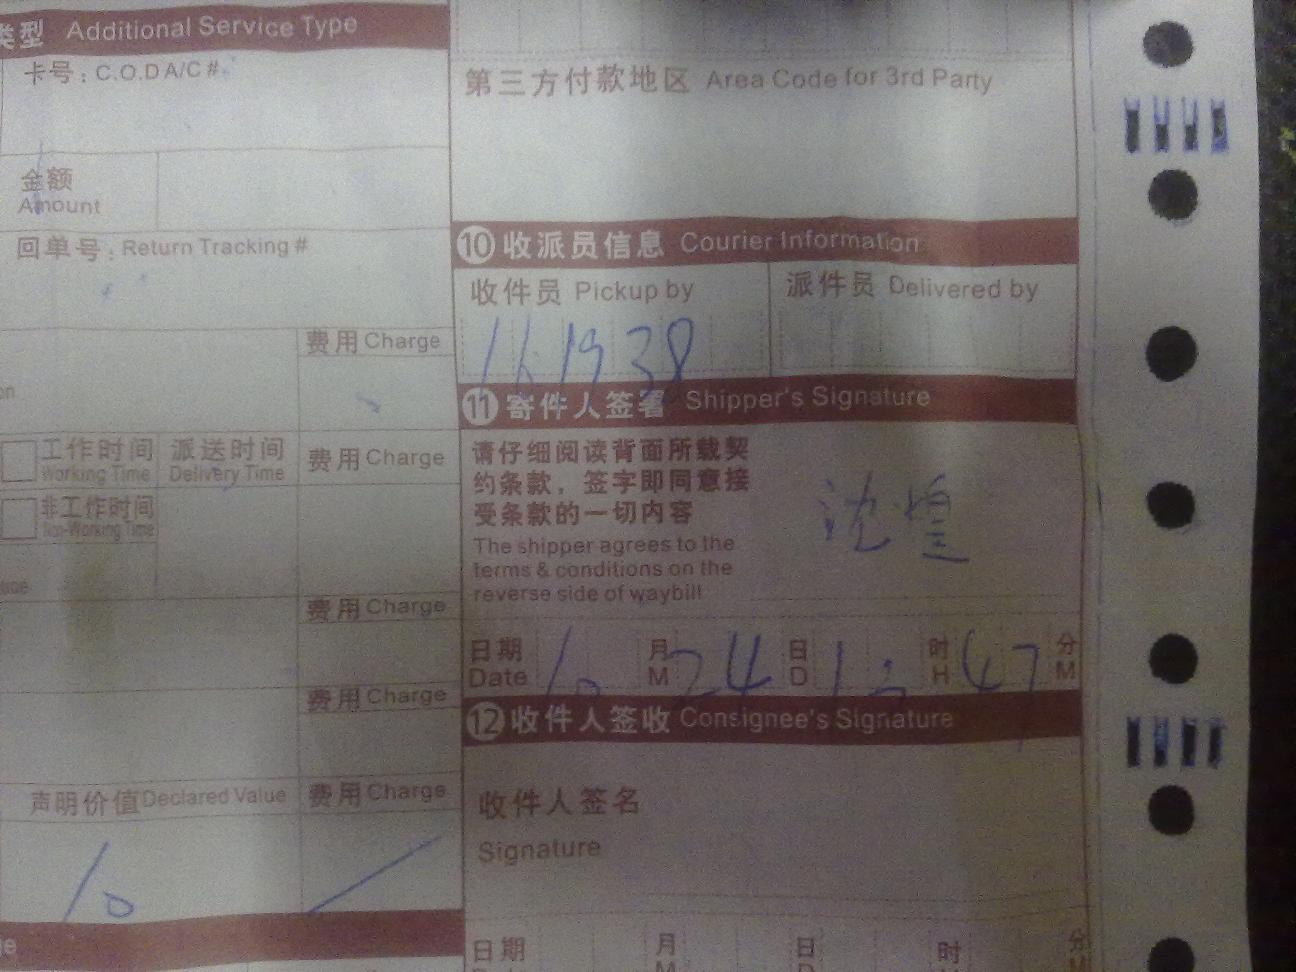 类型 Additional Service Type
卡号：C.O.D A/C #
金额
Amount
回单号：Return Tracking #
费用 Charge
工作时间
Working Time
派送时间
Delivery Time
费用 Charge
非工作时间
Non-Working Time
费用 Charge
费用 Charge
声明价值 Declared Value
费用 Charge
10
第三方付款地区 Area Code for 3rd Party
⑩ 收派员信息 Courier Information
收件员 Pickup by
派件员 Delivered by
161938
⑪ 寄件人签署 Shipper's Signature
请仔细阅读背面所载契
约条款，签字即同意接
受条款的一切内容
The shipper agrees to the
terms & conditions on the
reverse side of waybill
沈煌
日期 10 月 24 日 13 时 47 分
Date M D H M
⑫ 收件人签收 Consignee's Signature
收件人签名
Signature
日期 月 日 时 分